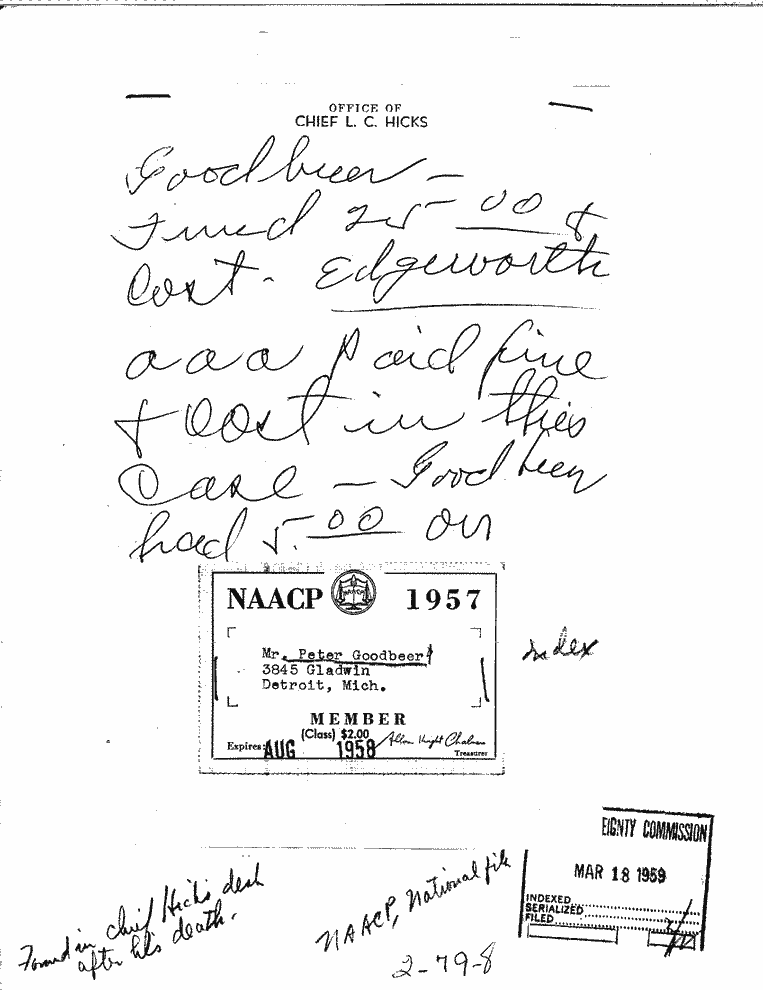 OFFICE OF
CHIEF L. C. HICKS
Goodbeer –
Fined 25.00 &
Cost - Edgeworth
a a a paid fine
+ cost in this
Case – Goodbeer
had 5.00 on
NAACP 1957
Mr. Peter Goodbeer
3845 Gladwin
Detroit, Mich.
MEMBER
(Class) $2.00
Expires: AUG 1958 Allan Knight Chalmers
Treasurer
Index
Found in chief Hicks desk
after his death.
NAACP, National file
2-79-8
EIGNTY COMMISSION
MAR 18 1959
INDEXED
SERIALIZED
FILED